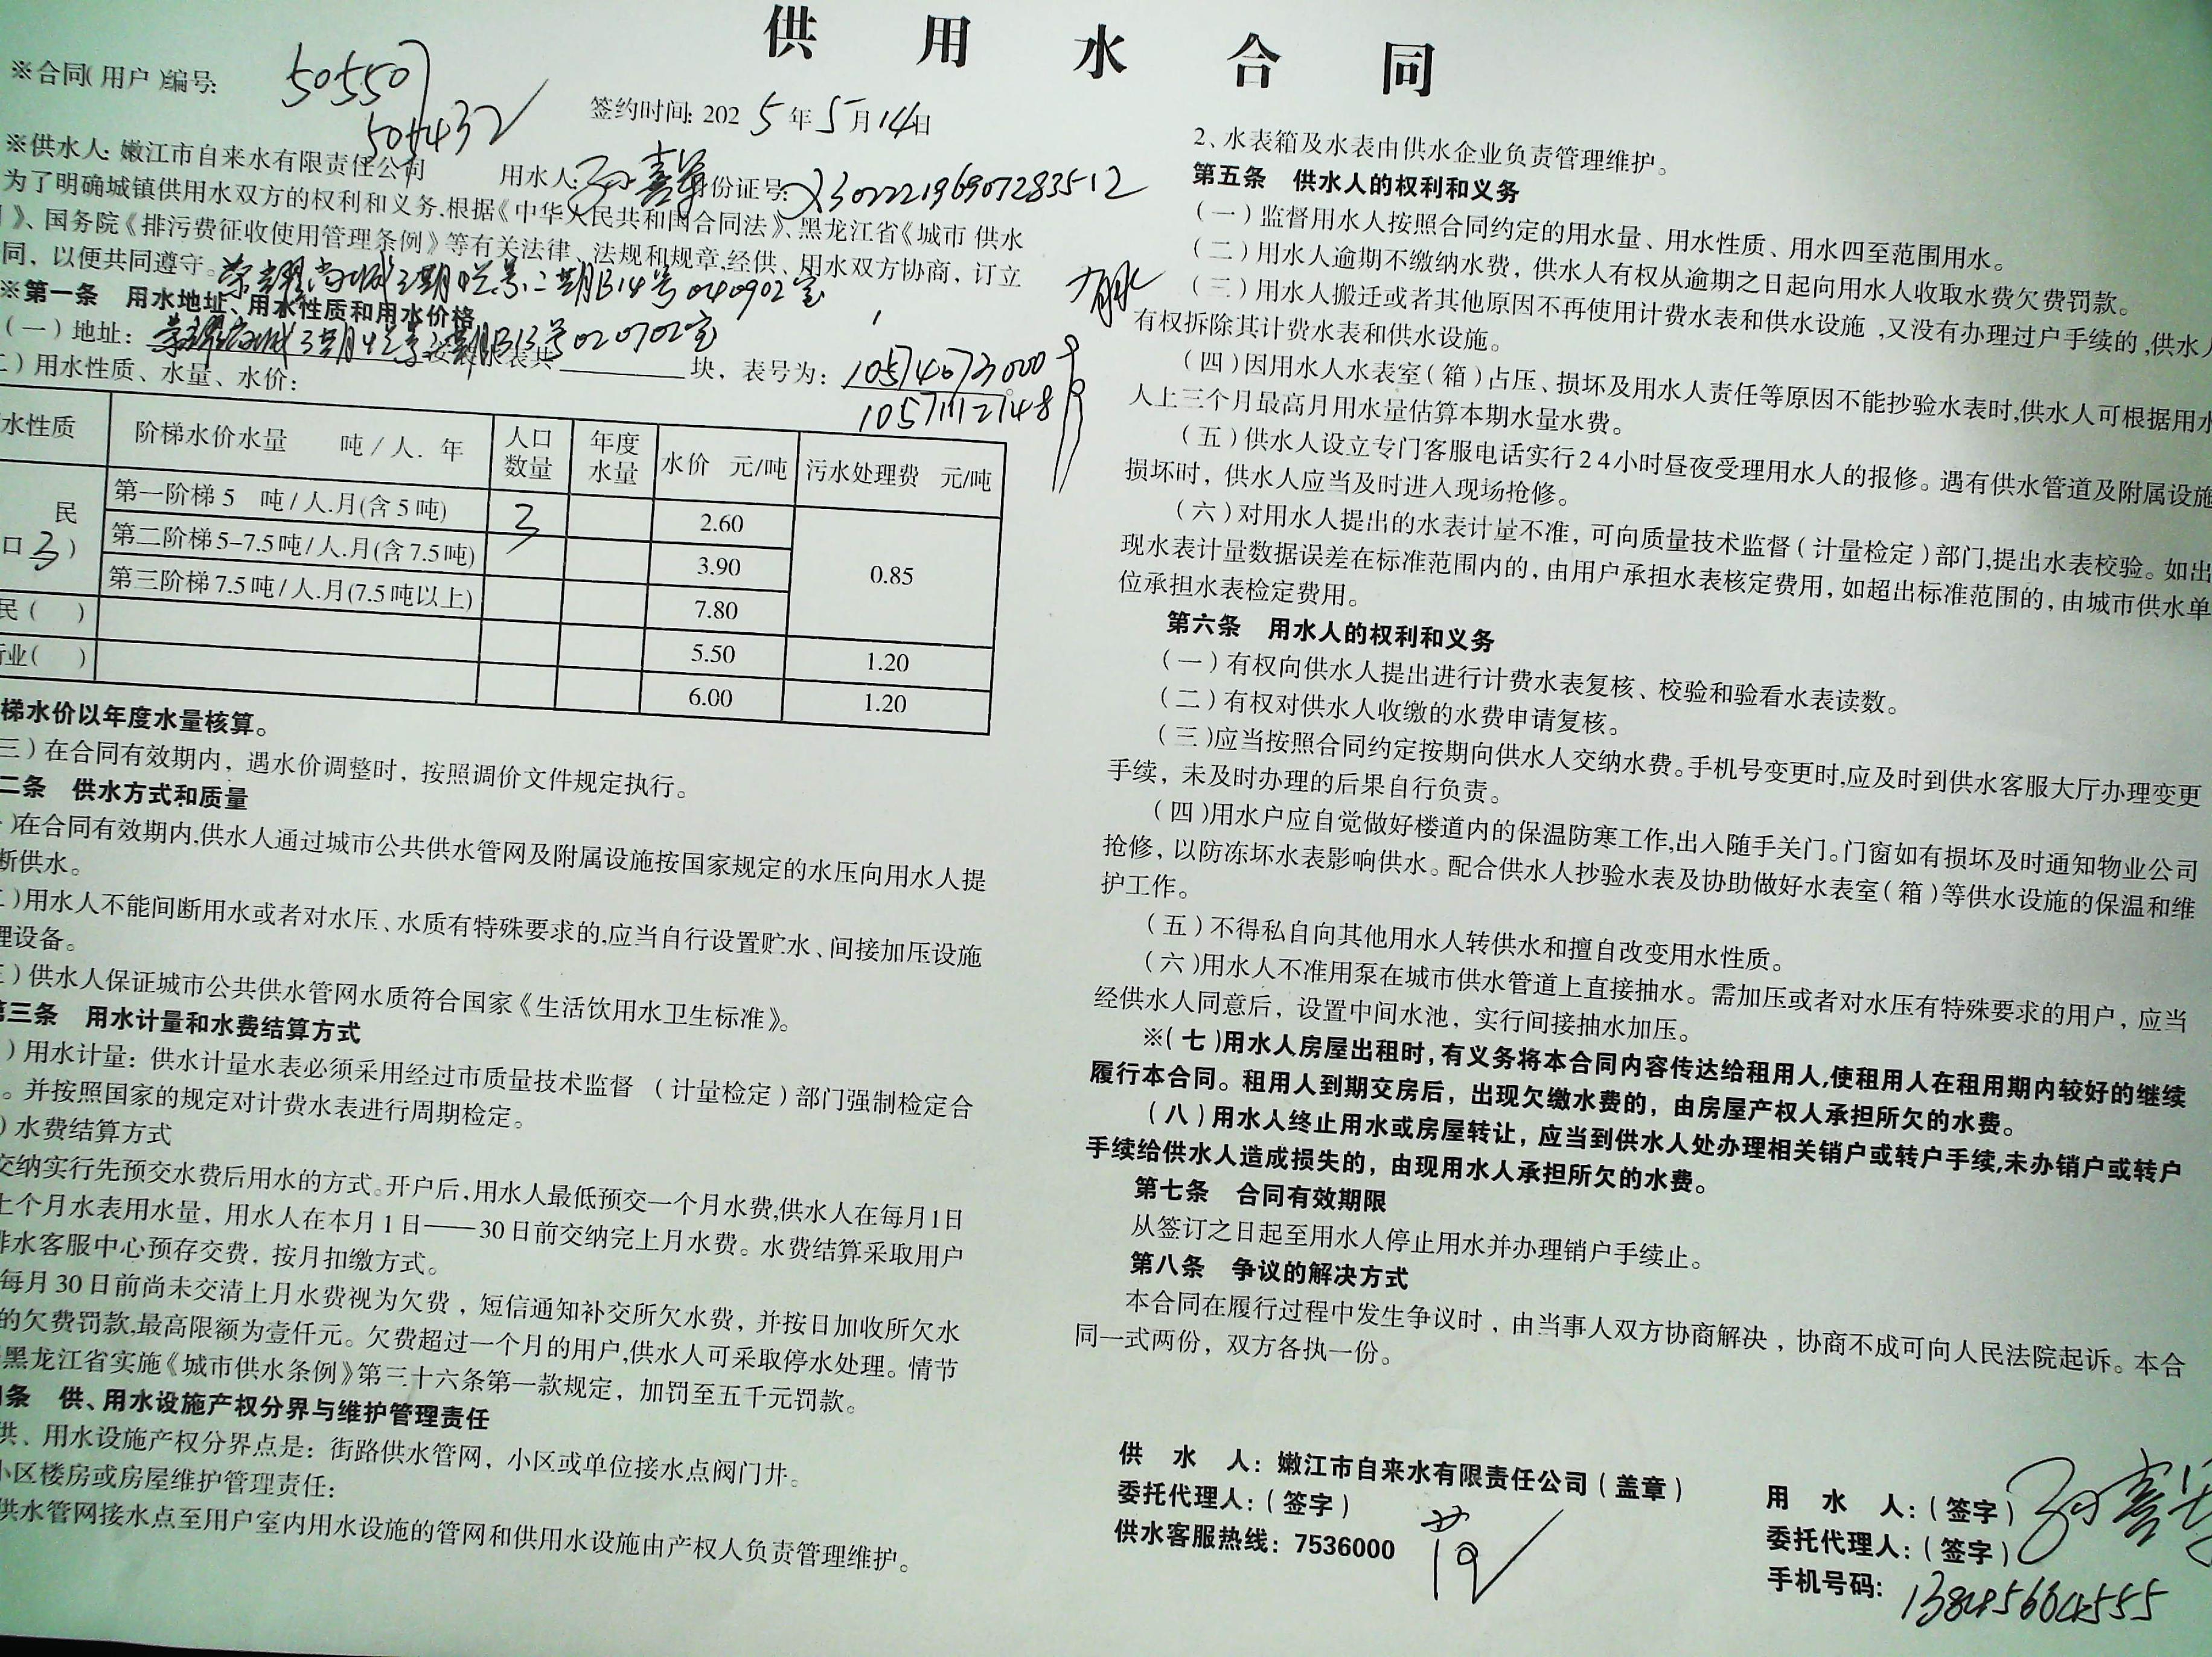 供用水合同
※合同(用户)编号:
505507
501432
签约时间: 2025年5月14日
※供水人: 嫩江市自来水有限责任公司 用水人: 孙喜军 身份证号: 230222196907283512
为了明确城镇供用水双方的权利和义务.根据《中华人民共和国合同法》、黑龙江省《城市 供水
》、国务院《排污费征收使用管理条例》等有关法律、法规和规章,经供、用水双方协商，订立
同，以便共同遵守。
荣耀尚城三期 二期B14号040902室
※第一条 用水地址、用水性质和用水价格
(一)地址: 荣耀尚城3期 二期B13号020702室 表共 块，表号为: 10574073000
)用水性质、水量、水价: 105711112148
水性质 阶梯水价水量 吨/人.年 人口数量 年度水量 水价 元/吨 污水处理费 元/吨
民 第一阶梯5 吨/人.月(含5吨) 3 2.60 0.85
口3) 第二阶梯5-7.5吨/人.月(含7.5吨) 3.90
第三阶梯7.5吨/人.月(7.5吨以上) 7.80
民( ) 5.50 1.20
业( ) 6.00 1.20
梯水价以年度水量核算。
三)在合同有效期内，遇水价调整时，按照调价文件规定执行。
二条 供水方式和质量
)在合同有效期内,供水人通过城市公共供水管网及附属设施按国家规定的水压向用水人提
断供水。
)用水人不能间断用水或者对水压、水质有特殊要求的,应当自行设置贮水、间接加压设施
理设备。
)供水人保证城市公共供水管网水质符合国家《生活饮用水卫生标准》。
第三条 用水计量和水费结算方式
)用水计量: 供水计量水表必须采用经过市质量技术监督 (计量检定)部门强制检定合
。并按照国家的规定对计费水表进行周期检定。
)水费结算方式
交纳实行先预交水费后用水的方式。开户后,用水人最低预交一个月水费,供水人在每月1日
上个月水表用水量，用水人在本月1日——30日前交纳完上月水费。水费结算采取用户
排水客服中心预存交费，按月扣缴方式。
每月30日前尚未交清上月水费视为欠费，短信通知补交所欠水费，并按日加收所欠水
的欠费罚款,最高限额为壹仟元。欠费超过一个月的用户,供水人可采取停水处理。情节
黑龙江省实施《城市供水条例》第三十六条第一款规定，加罚至五千元罚款。
条 供、用水设施产权分界与维护管理责任
供、用水设施产权分界点是: 街路供水管网，小区或单位接水点阀门井。
小区楼房或房屋维护管理责任:
供水管网接水点至用户室内用水设施的管网和供用水设施由产权人负责管理维护。
2、水表箱及水表由供水企业负责管理维护。
第五条 供水人的权利和义务
(一)监督用水人按照合同约定的用水量、用水性质、用水四至范围用水。
(二)用水人逾期不缴纳水费，供水人有权从逾期之日起向用水人收取水费欠费罚款。
(三)用水人搬迁或者其他原因不再使用计费水表和供水设施,又没有办理过户手续的,供水人
有权拆除其计费水表和供水设施。
(四)因用水人水表室(箱)占压、损坏及用水人责任等原因不能抄验水表时,供水人可根据用水
人上三个月最高月用水量估算本期水量水费。
(五)供水人设立专门客服电话实行24小时昼夜受理用水人的报修。遇有供水管道及附属设施
损坏时，供水人应当及时进入现场抢修。
(六)对用水人提出的水表计量不准，可向质量技术监督(计量检定)部门,提出水表校验。如出
现水表计量数据误差在标准范围内的，由用户承担水表核定费用，如超出标准范围的，由城市供水单
位承担水表检定费用。
第六条 用水人的权利和义务
(一)有权向供水人提出进行计费水表复核、校验和验看水表读数。
(二)有权对供水人收缴的水费申请复核。
(三)应当按照合同约定按期向供水人交纳水费。手机号变更时,应及时到供水客服大厅办理变更
手续，未及时办理的后果自行负责。
(四)用水户应自觉做好楼道内的保温防寒工作,出入随手关门。门窗如有损坏及时通知物业公司
抢修，以防冻坏水表影响供水。配合供水人抄验水表及协助做好水表室(箱)等供水设施的保温和维
护工作。
(五)不得私自向其他用水人转供水和擅自改变用水性质。
(六)用水人不准用泵在城市供水管道上直接抽水。需加压或者对水压有特殊要求的用户，应当
经供水人同意后，设置中间水池，实行间接抽水加压。
※(七)用水人房屋出租时,有义务将本合同内容传达给租用人,使租用人在租用期内较好的继续
履行本合同。租用人到期交房后，出现欠缴水费的，由房屋产权人承担所欠的水费。
(八)用水人终止用水或房屋转让，应当到供水人处办理相关销户或转户手续,未办销户或转户
手续给供水人造成损失的，由现用水人承担所欠的水费。
第七条 合同有效期限
从签订之日起至用水人停止用水并办理销户手续止。
第八条 争议的解决方式
本合同在履行过程中发生争议时，由当事人双方协商解决，协商不成可向人民法院起诉。本合
同一式两份，双方各执一份。
供 水 人: 嫩江市自来水有限责任公司(盖章)
委托代理人:(签字)
供水客服热线: 7536000
用 水 人:(签字) 孙喜军
委托代理人:(签字)
手机号码: 13845664555